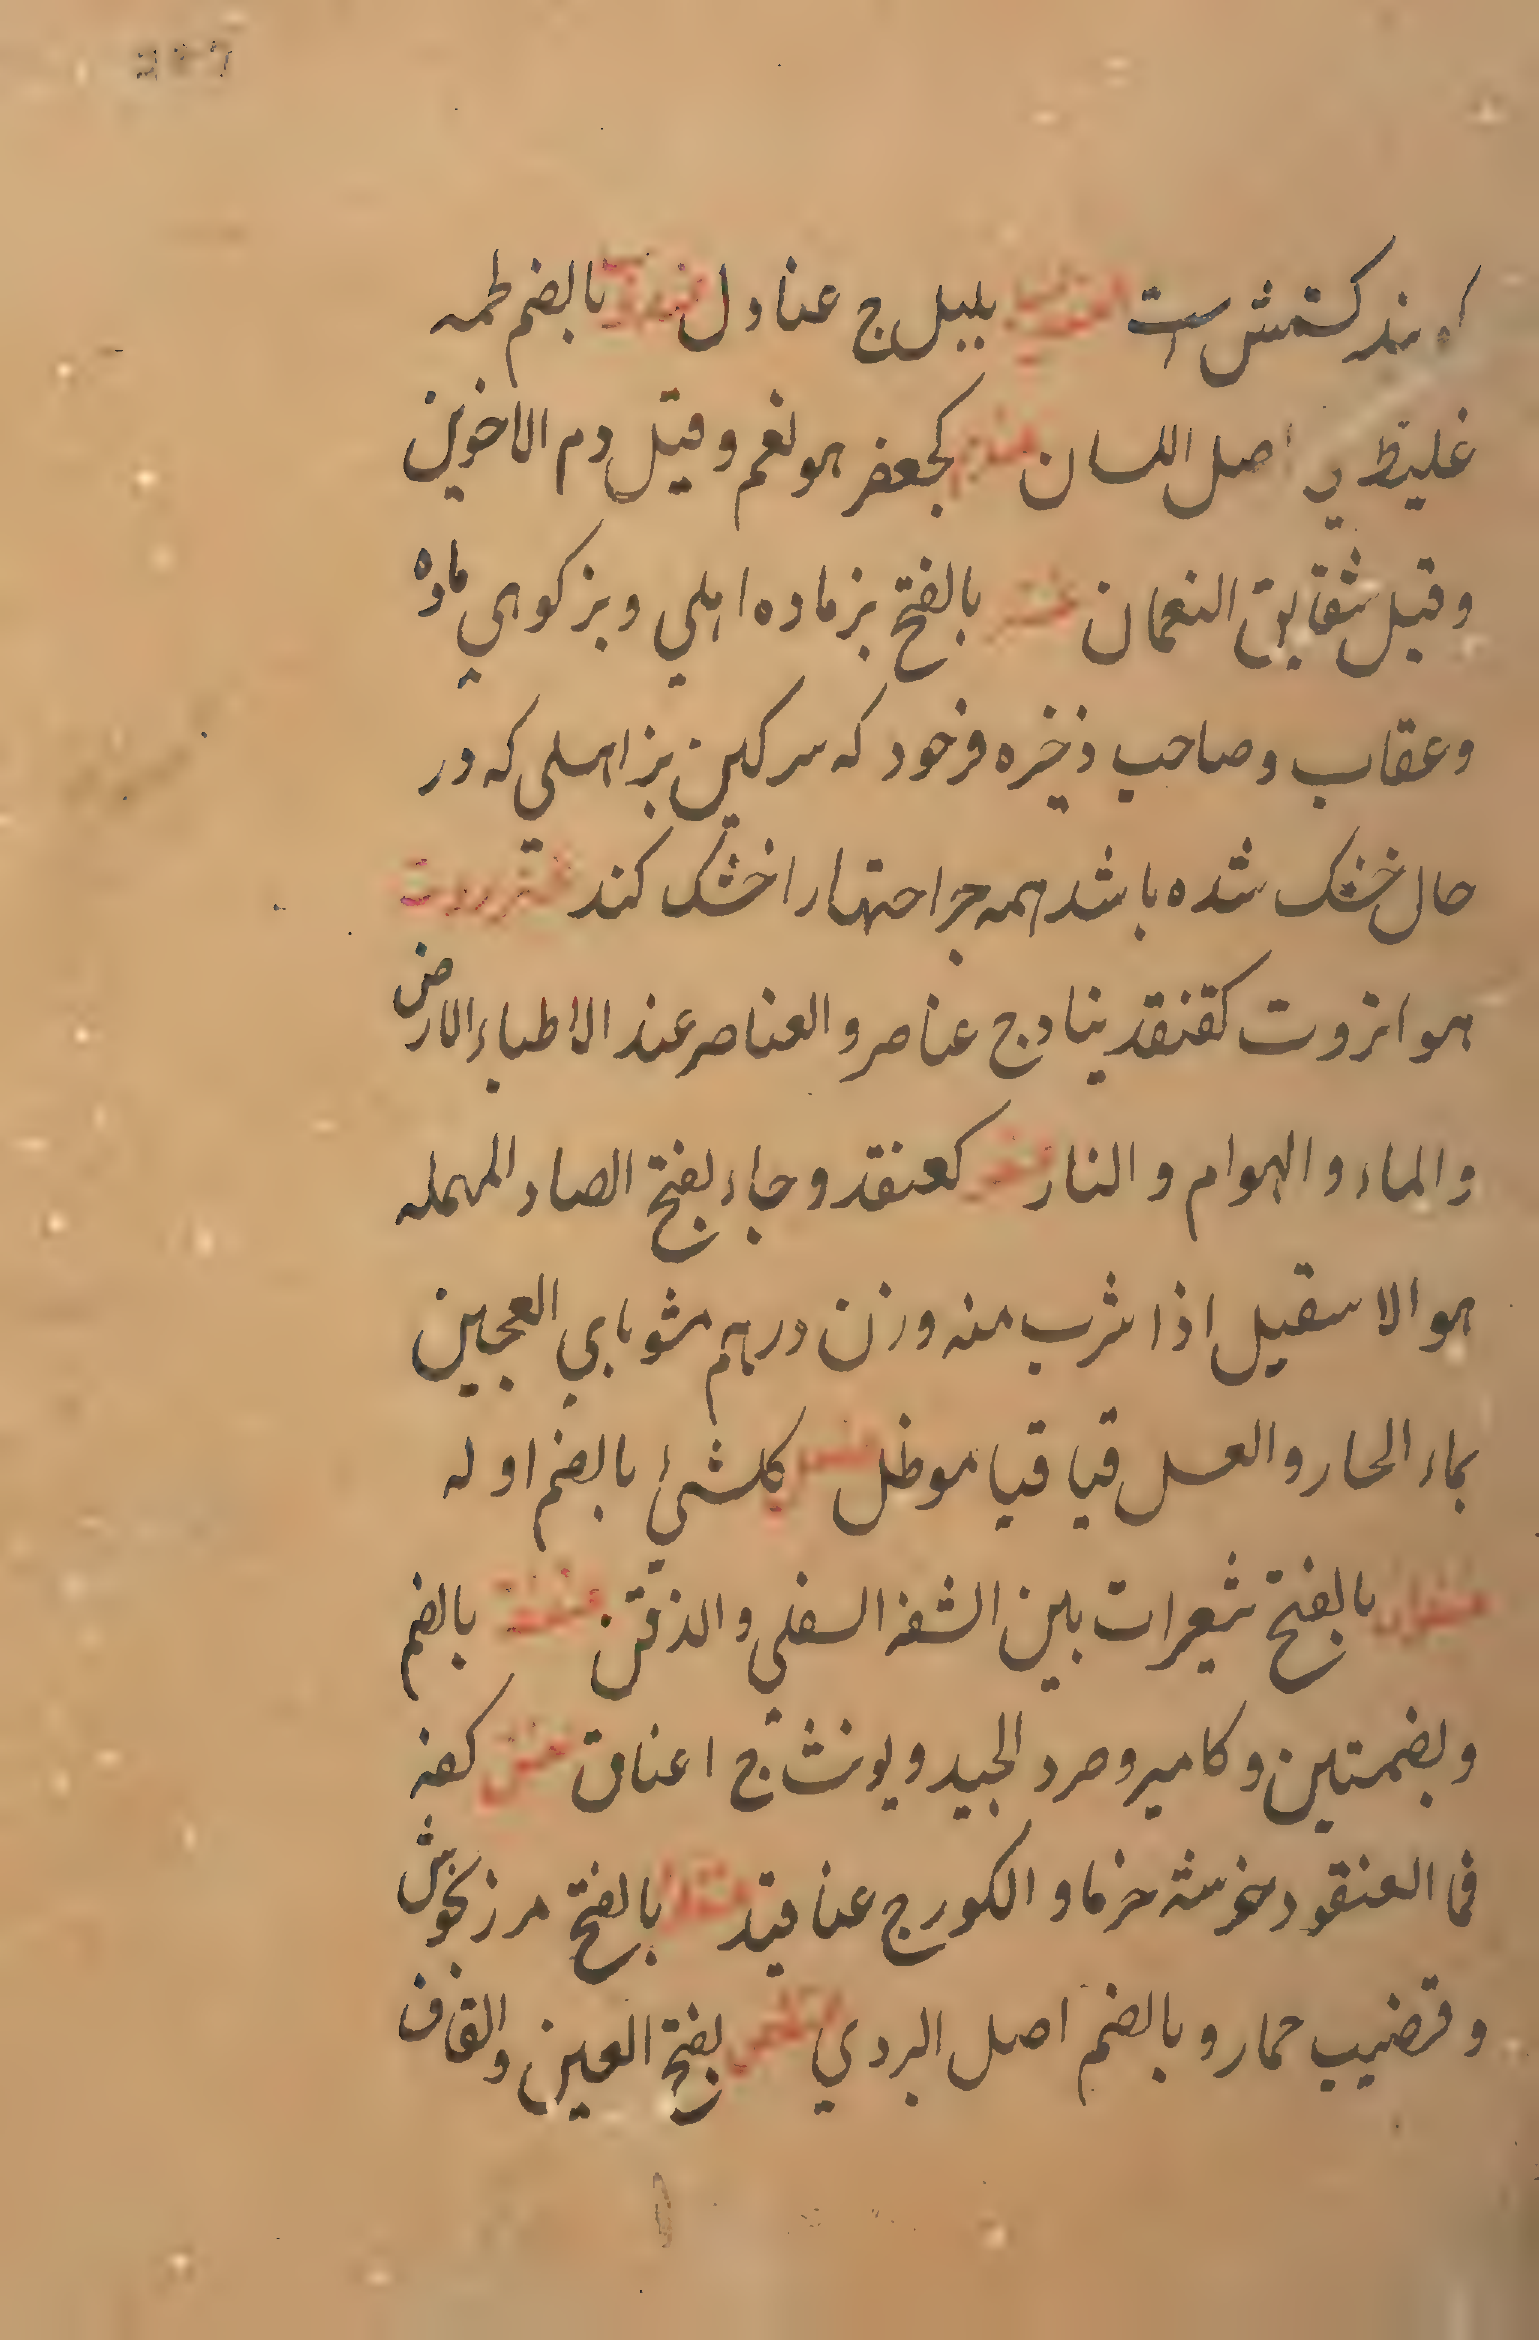 کویند کشمش است عندلیب بلبل ج عنادل بالضم طمه
غلیظ في اصل اللسان عندم کجعفر هو نغم وقیل دم الاخوین
وقیل شقایق النعمان عنز بالفتح بز ماده اهلي و بز کوهي ماده
وعقاب وصاحب ذخیره فرخود که سرکین بز اهلي که در
حال خشک شده باشد همه جراحتها را خشک کند عنزروت
هو انزروت کقنفذ بنا دج عناصر و العناصر عند الاطباء الارض
والماء و الهوام و النار کعنقد و جاء بفتح الصاد المهمله
هو الاسقیل اذا شرب منه وزن درهم مشویا بي العجین
بماء الحار والعسل قیا قیا موظل کلشئ بالضم اوله
بالفتح شعیرات بین الشفه السفلي و الذقن بالضم
و بضمتین و کامیر و صرد الجید و یونث ج اعناق کعنه
فما العنقود خوشه خرما و الکور ج عناقید بالفتح مرزنجوش
و قضیب حمار و بالضم اصل البردي بفتح العین والقاف